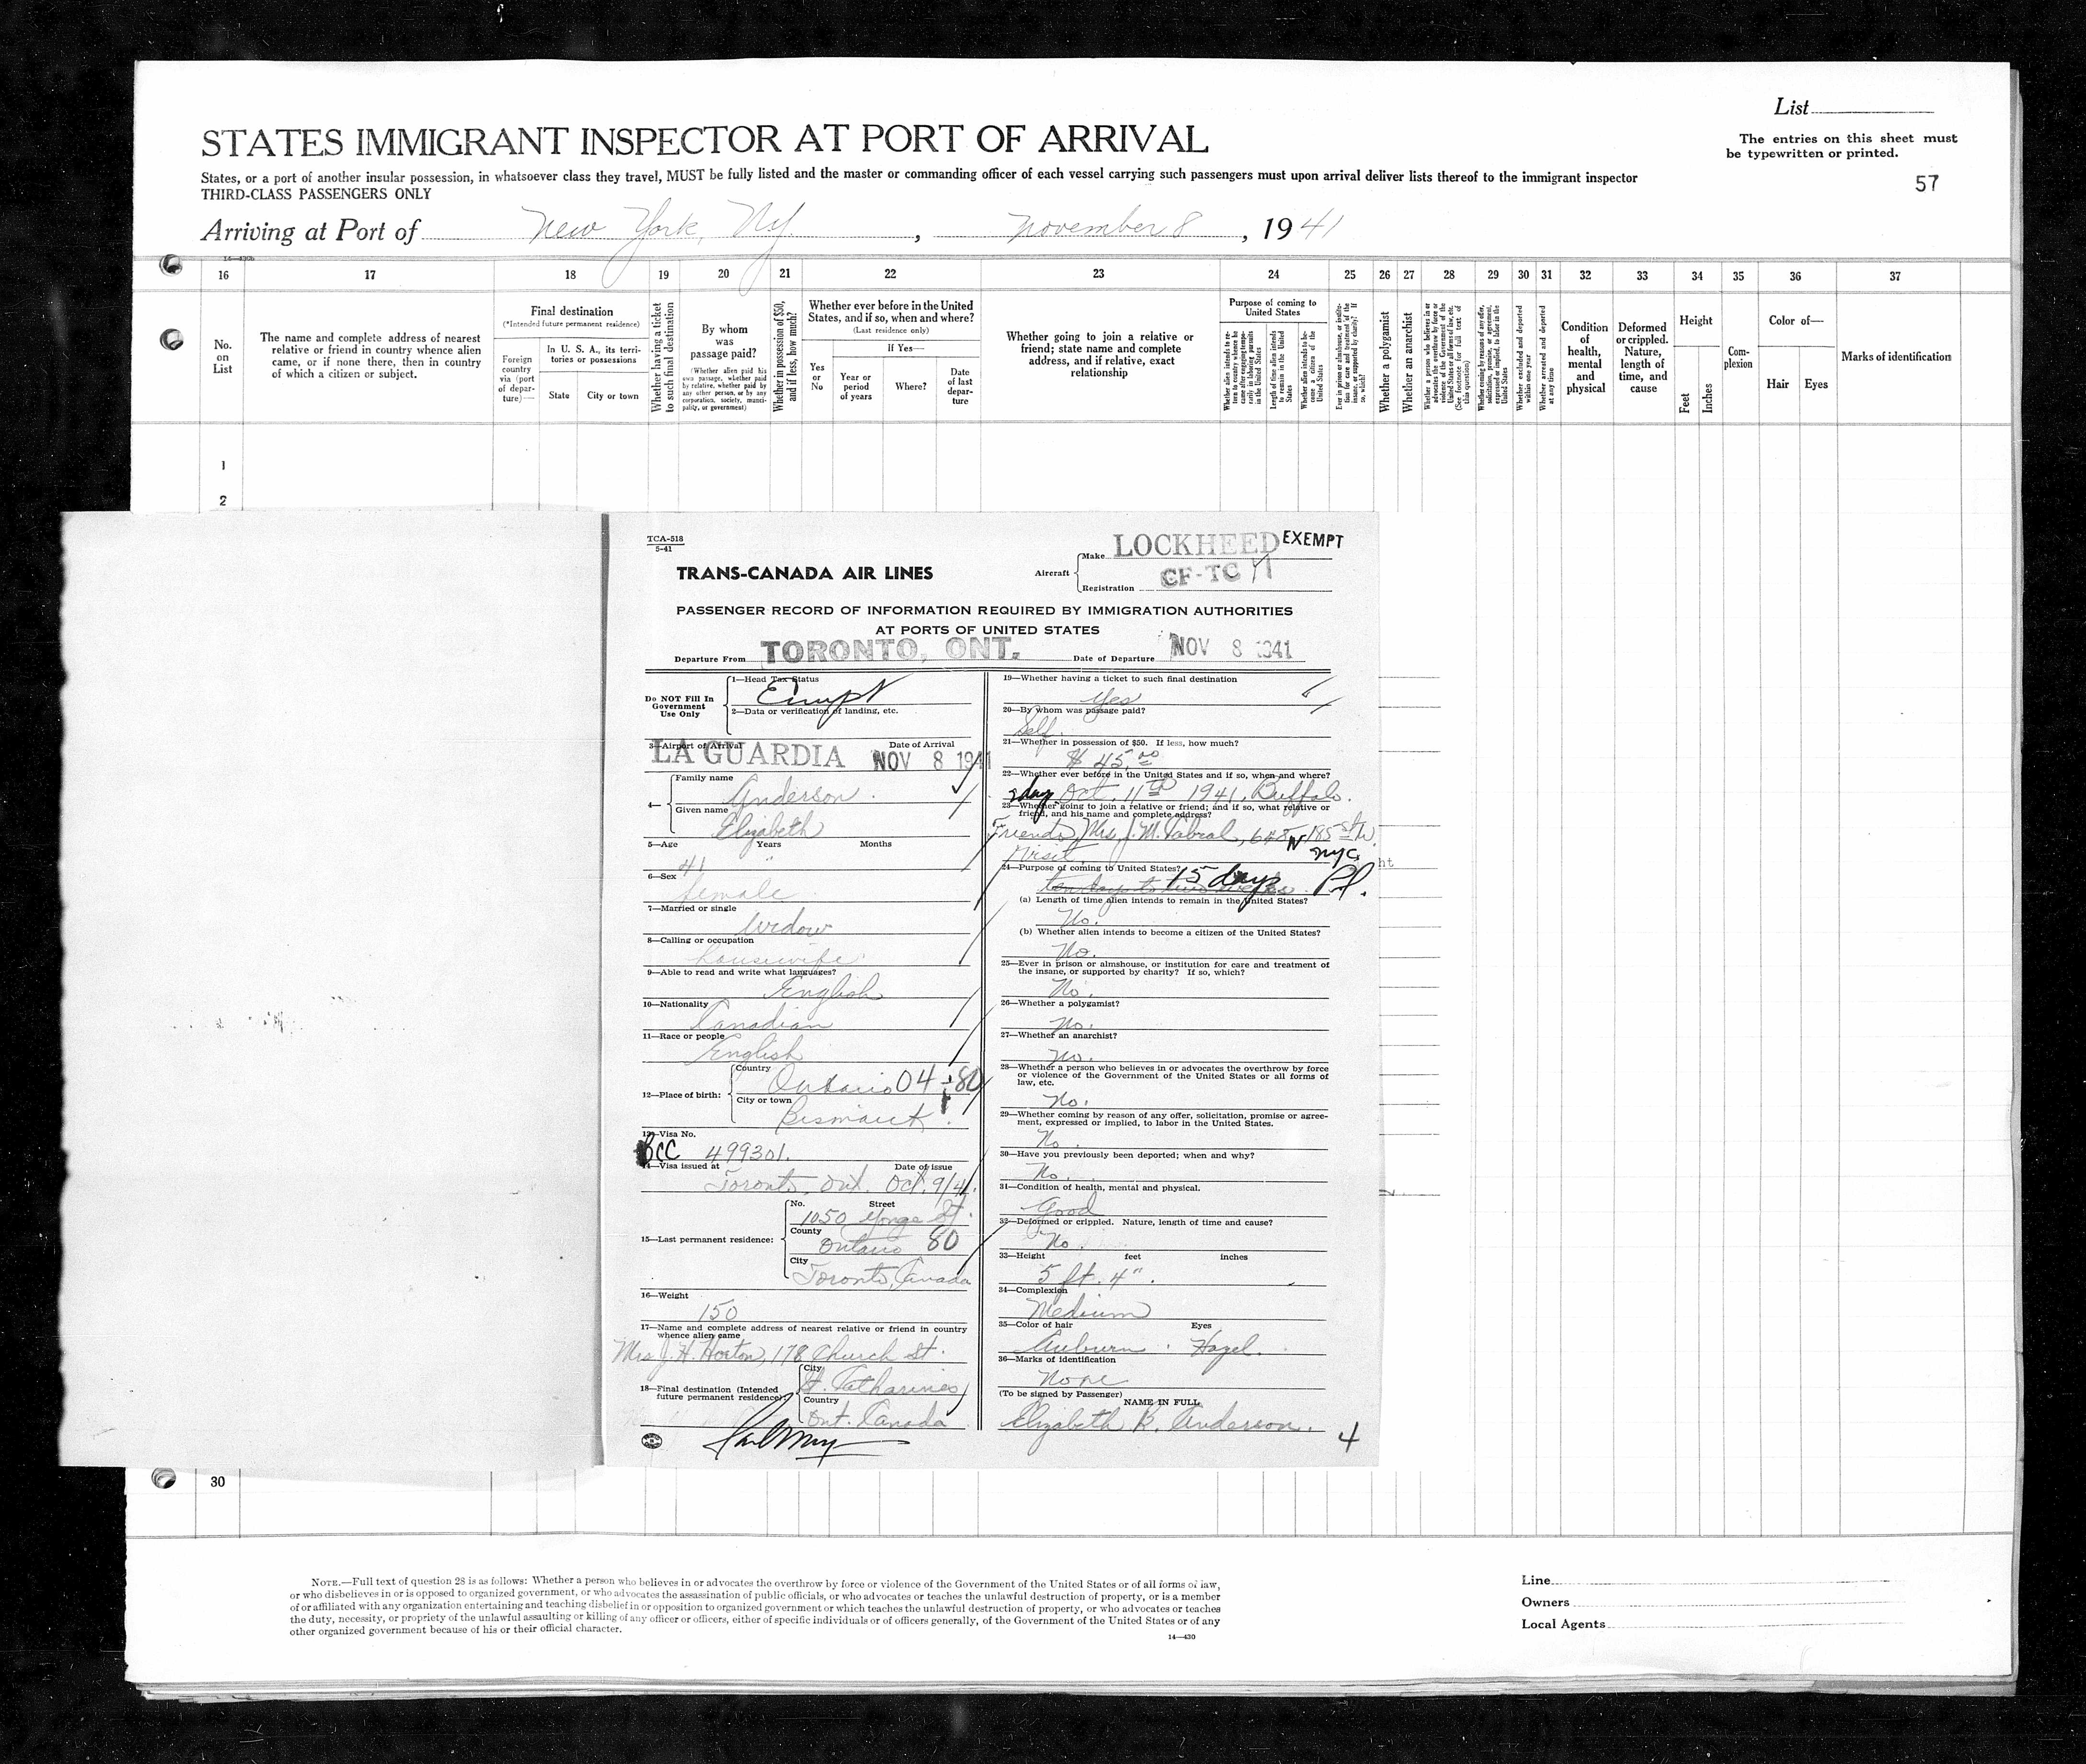 List
STATES IMMIGRANT INSPECTOR AT PORT OF ARRIVAL
The entries on this sheet must
be typewritten or printed.
States, or a port of another insular possession, in whatsoever class they travel, MUST be fully listed and the master or commanding officer of each vessel carrying such passengers must upon arrival deliver lists thereof to the immigrant inspector
THIRD-CLASS PASSENGERS ONLY
57
Arriving at Port of New York, NY. , November 8 , 1941
16 17 18 19 20 21 22 23 24 25 26 27 28 29 30 31 32 33 34 35 36 37
No. on List
The name and complete address of nearest
relative or friend in country whence alien
came, or if none there, then in country
of which a citizen or subject.
Final destination
(*Intended future permanent residence)
Foreign
country
via (port
of depar-
ture)—
In U. S. A., its terri-
tories or possessions
State
City or town
Whether having a ticket
to such final destination
By whom
was
passage paid?
(Whether alien paid his
own passage, whether paid
by relative, whether paid by
any other person, or by any
corporation, society, munici-
pality, or government)
Whether in possession of $50,
and if less, how much?
Whether ever before in the United
States, and if so, when and where?
(Last residence only)
Yes
or
No
If Yes—
Year or
period
of years
Where?
Date
of last
depar-
ture
Whether going to join a relative or
friend; state name and complete
address, and if relative, exact
relationship
Purpose of coming to
United States
Whether alien intends to re-
turn to country whence he
came after engaging tempo-
rarily in laboring pursuits
in the United States
Length of time alien intends
to remain in the United
States
Whether alien intends to be-
come a citizen of the
United States
Ever in prison or almshouse, or institu-
tion for care and treatment of the
insane, or supported by charity? If
so, which?
Whether a polygamist
Whether an anarchist
Whether a person who believes in or
advocates the overthrow by force or
violence of the Government of the
United States or all forms of law, etc.
(See footnote for full text of
this question)
Whether coming by reasons of any offer,
solicitation, promise, or agreement,
expressed or implied, to labor in the
United States
Whether excluded and deported
within one year
Whether arrested and deported
at any time
Condition
of
health,
mental
and
physical
Deformed
or crippled.
Nature,
length of
time, and
cause
Height
Feet
Inches
Com-
plexion
Color of—
Hair
Eyes
Marks of identification
1
2
TCA-518
5-41
TRANS-CANADA AIR LINES
Aircraft
Make LOCKHEED EXEMPT
Registration CF-TC
PASSENGER RECORD OF INFORMATION REQUIRED BY IMMIGRATION AUTHORITIES
AT PORTS OF UNITED STATES
Departure From TORONTO, ONT. Date of Departure NOV 8 1941
Do NOT Fill In
Government
Use Only
1—Head Tax Status
Exmpt
2—Data or verification of landing, etc.
3—Airport of Arrival Date of Arrival
LA GUARDIA NOV 8 1941
4—
Family name
Anderson.
Given name
Elizabeth
5—Age Years Months
41
6—Sex
female
7—Married or single
Widow
8—Calling or occupation
housewife
9—Able to read and write what languages?
English
10—Nationality
Canadian
11—Race or people
English
12—Place of birth:
Country
Ontario 04-80
City or town
Bismarck.
13—Visa No.
BCC 499301.
14—Visa issued at Date of issue
Toronto, Ont. Oct. 9/41
15—Last permanent residence:
No. Street
1050 Yonge St.
County
Ontario 80
City
Toronto, Canada
16—Weight
150
17—Name and complete address of nearest relative or friend in country
whence alien came
Mrs J. H. Horton, 178 Church St.
18—Final destination (Intended
future permanent residence)
City
St. Catharines
Country
Ont. Canada
19—Whether having a ticket to such final destination
Yes
20—By whom was passage paid?
Self.
21—Whether in possession of $50. If less, how much?
$ 45.00
22—Whether ever before in the United States and if so, when and where?
day Oct. 11th 1941, Buffalo.
23—Whether going to join a relative or friend; and if so, what relative or
friend, and his name and complete address?
Friend, Mrs. J. M. Cabral, 648 W 185 St
NYC
Visit
24—Purpose of coming to United States?
15 days
(a) Length of time alien intends to remain in the United States?
No.
(b) Whether alien intends to become a citizen of the United States?
No.
25—Ever in prison or almshouse, or institution for care and treatment of
the insane, or supported by charity? If so, which?
No.
26—Whether a polygamist?
No.
27—Whether an anarchist?
No.
28—Whether a person who believes in or advocates the overthrow by force
or violence of the Government of the United States or all forms of
law, etc.
No.
29—Whether coming by reason of any offer, solicitation, promise or agree-
ment, expressed or implied, to labor in the United States.
No.
30—Have you previously been deported; when and why?
No.
31—Condition of health, mental and physical.
Good
32—Deformed or crippled. Nature, length of time and cause?
No.
33—Height feet inches
5 ft. 4".
34—Complexion
Medium
35—Color of hair Eyes
Auburn. Hazel.
36—Marks of identification
None
(To be signed by Passenger)
NAME IN FULL
Elizabeth B. Anderson.
4
30
NOTE.—Full text of question 28 is as follows: Whether a person who believes in or advocates the overthrow by force or violence of the Government of the United States or of all forms of law,
or who disbelieves in or is opposed to organized government, or who advocates the assassination of public officials, or who advocates or teaches the unlawful destruction of property, or is a member
of or affiliated with any organization entertaining and teaching disbelief in or opposition to organized government or which teaches the unlawful destruction of property, or who advocates or teaches
the duty, necessity, or propriety of the unlawful assaulting or killing of any officer or officers, either of specific individuals or of officers generally, of the Government of the United States or of any
other organized government because of his or their official character.
14—430
Line
Owners
Local Agents